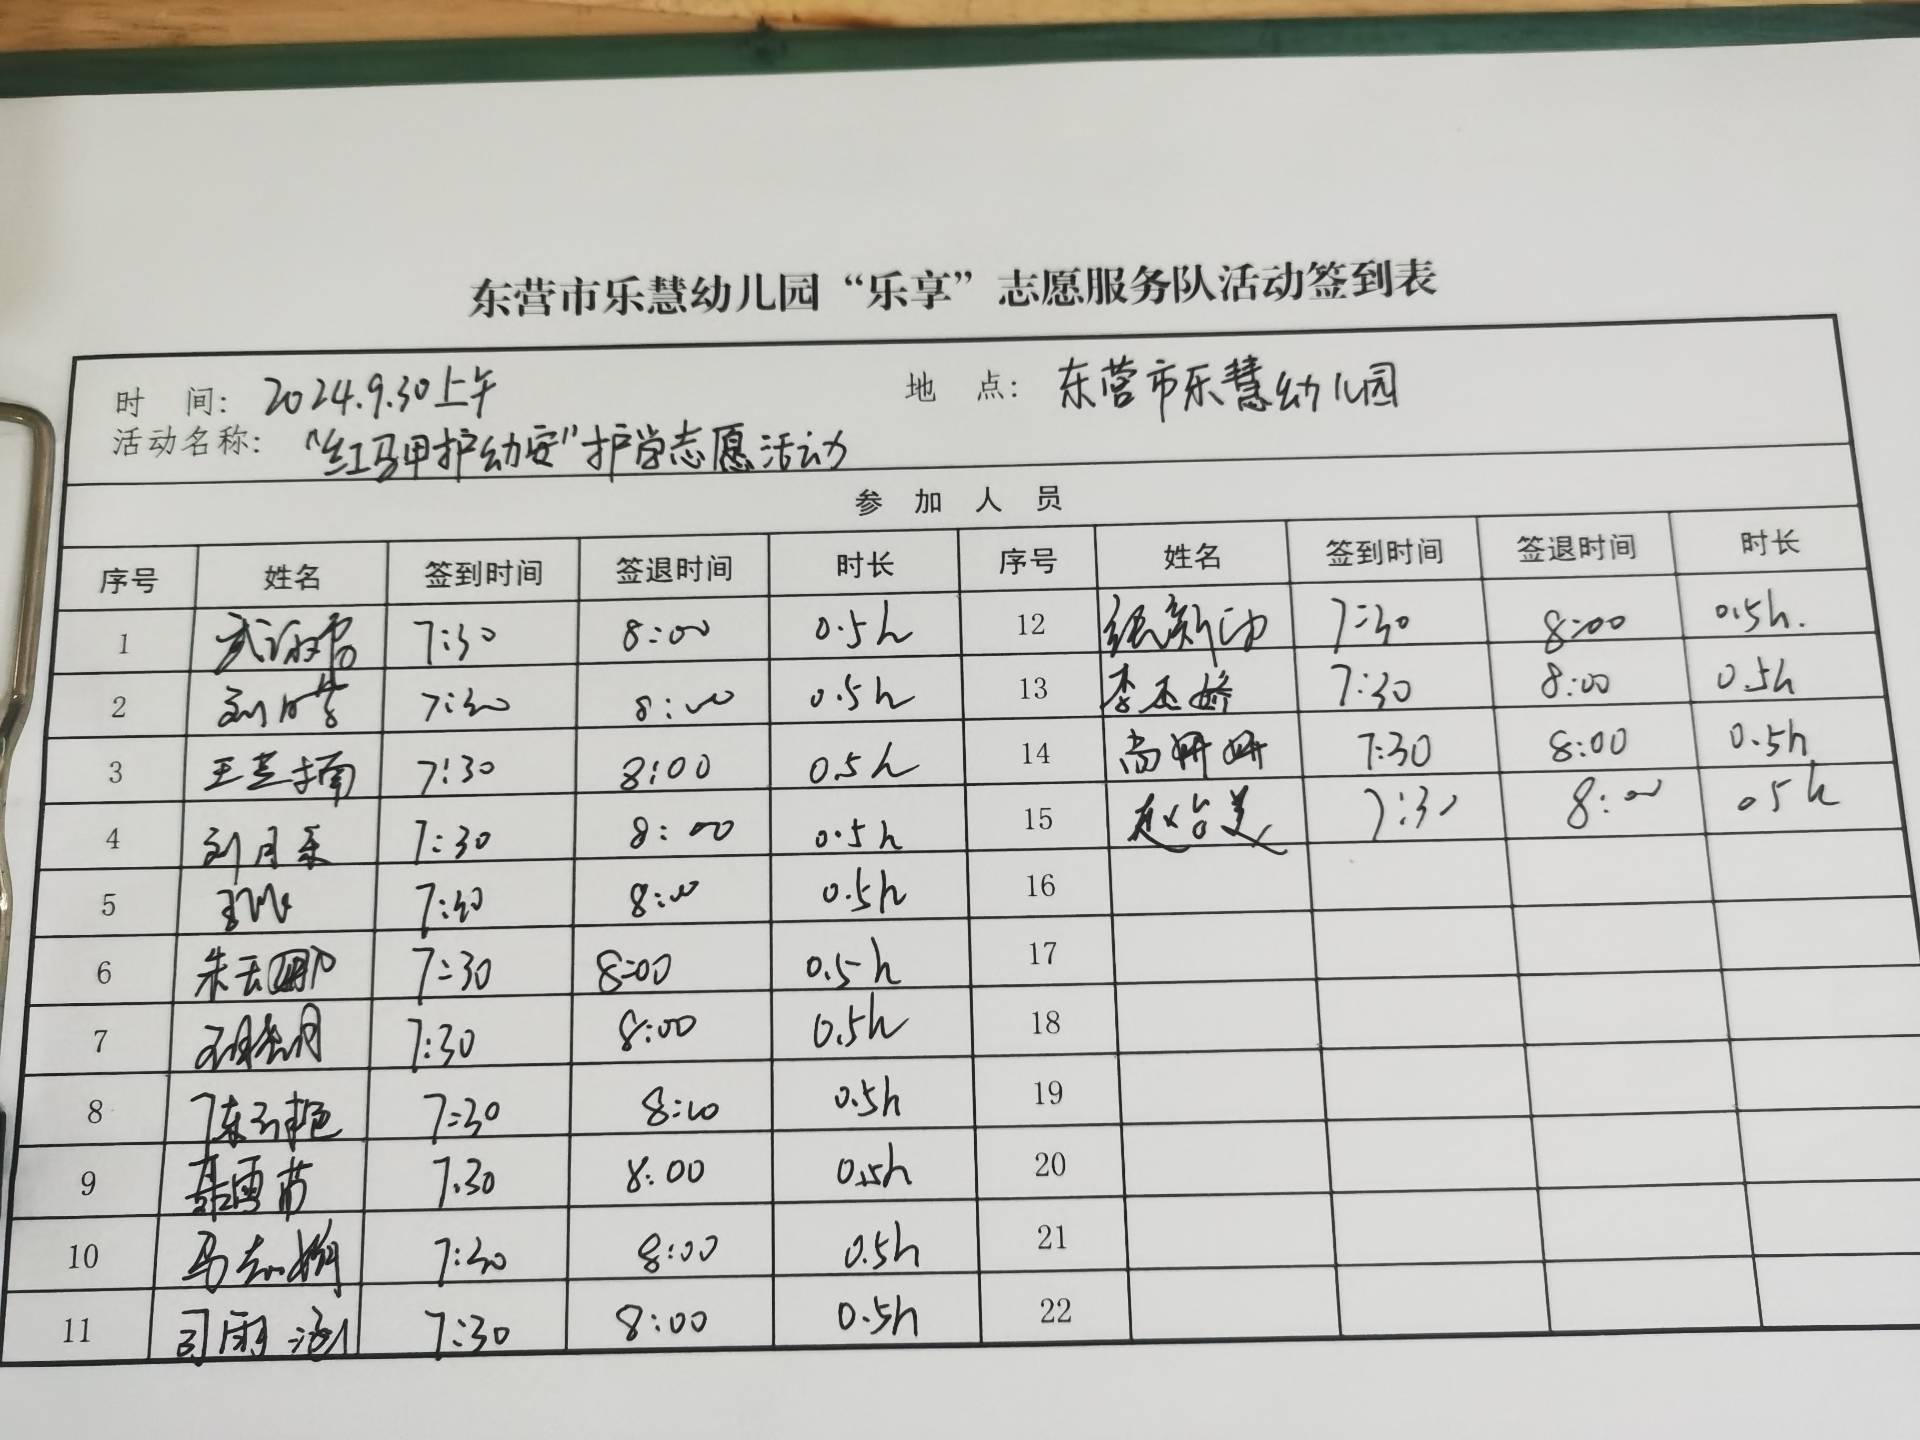 东营市乐慧幼儿园“乐享”志愿服务队活动签到表
时 间: 2024.9.30上午 地 点: 东营市乐慧幼儿园
活动名称: “红马甲护幼安”护学志愿活动
参 加 人 员
序号 姓名 签到时间 签退时间 时长 序号 姓名 签到时间 签退时间 时长
1 7:30 8:00 0.5h 12 7:30 8:00 0.5h.
2 7:30 8:00 0.5h 13 7:30 8:00 0.5h
3 7:30 8:00 0.5h 14 尚妍妍 7:30 8:00 0.5h
4 7:30 8:00 0.5h 15 7:30 8:00 0.5h
5 7:30 8:00 0.5h 16
6 7:30 8:00 0.5h 17
7 7:30 8:00 0.5h 18
8 7:30 8:00 0.5h 19
9 7:30 8:00 0.5h 20
10 7:30 8:00 0.5h 21
11 7:30 8:00 0.5h 22